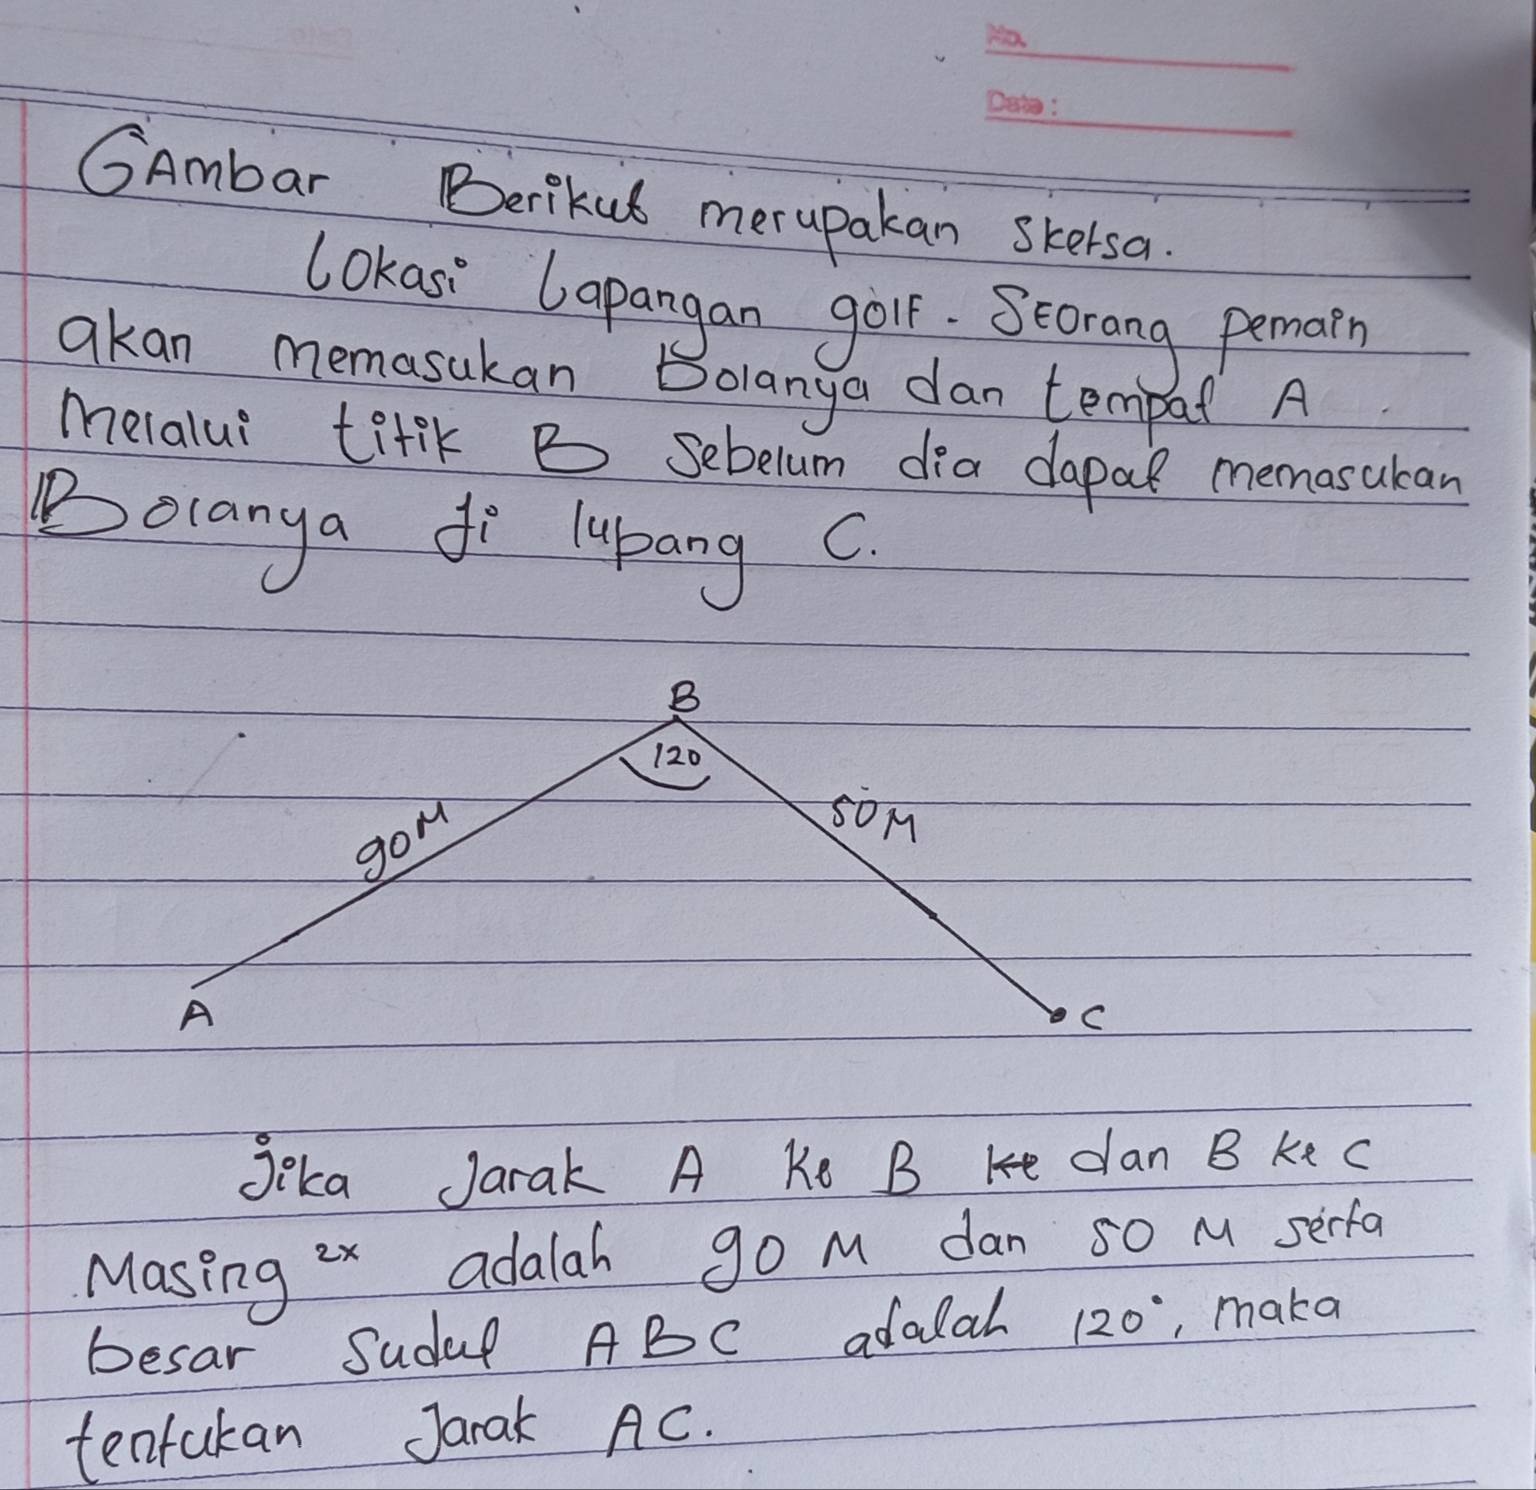 No.
Date:
GAmbar Berikut merupakan sketsa.
lokasi lapangan golf. SEorang pemain
akan memasukan Bolanya dan tempat A
Melalui titik B sebelum dia dapat memasukan
Bolanya di lubang C.
B
120
90 M
50 M
A
C
Jika Jarak A ke B ke dan B ke C
Masing 2x adalah 90 M dan 50 M serta
besar sudut ABC adalah 120°, maka
tentukan Jarak AC.